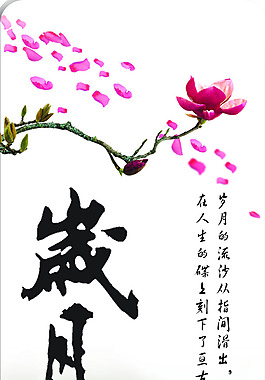 歲月
岁月的流沙从指间滑出，
在人生的碟上刻下了亘古